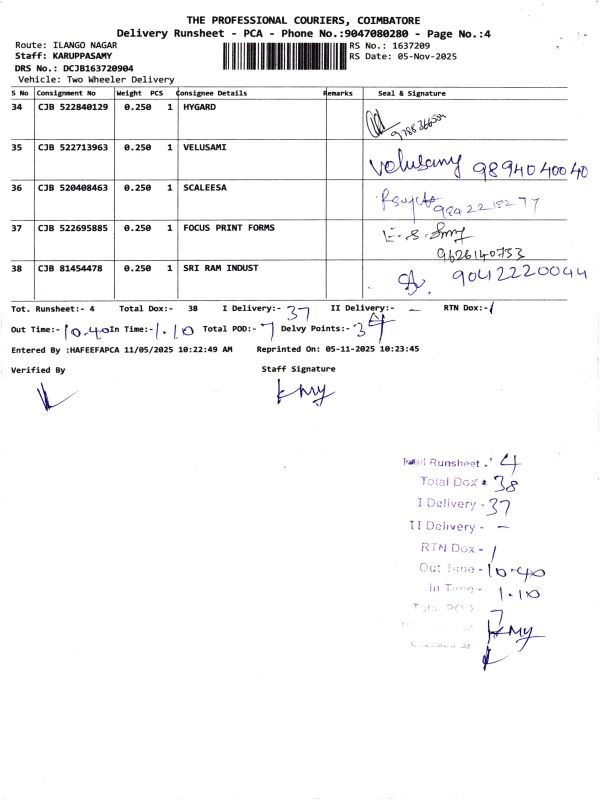 THE PROFESSIONAL COURIERS, COIMBATORE
Delivery Runsheet - PCA - Phone No.:9047080280 - Page No.:4
Route: ILANGO NAGAR RS No.: 1637209
Staff: KARUPPASAMY RS Date: 05-Nov-2025
DRS No.: DCJB163720904
Vehicle: Two Wheeler Delivery
S No Consignment No Weight PCS Consignee Details Remarks Seal & Signature
34 CJB 522840129 0.250 1 HYGARD
35 CJB 522713963 0.250 1 VELUSAMI Velusamy 9894040040
36 CJB 520408463 0.250 1 SCALEESA 9842218277
37 CJB 522695885 0.250 1 FOCUS PRINT FORMS
9626140753
38 CJB 81454478 0.250 1 SRI RAM INDUST 9042220044
Tot. Runsheet:- 4 Total Dox:- 38 I Delivery:- 37 II Delivery:- — RTN Dox:- 1
Out Time:- 10.40 In Time:- 1.10 Total POD:- 7 Delvy Points:- 34
Entered By :HAFEEFAPCA 11/05/2025 10:22:49 AM Reprinted On: 05-11-2025 10:23:45
Verified By Staff Signature
Total Runsheet . 4
Total Dox 38
I Delivery - 37
II Delivery - —
RTN Dox - 1
Out Time - 10.40
In Time - 1.10
Total POD 7